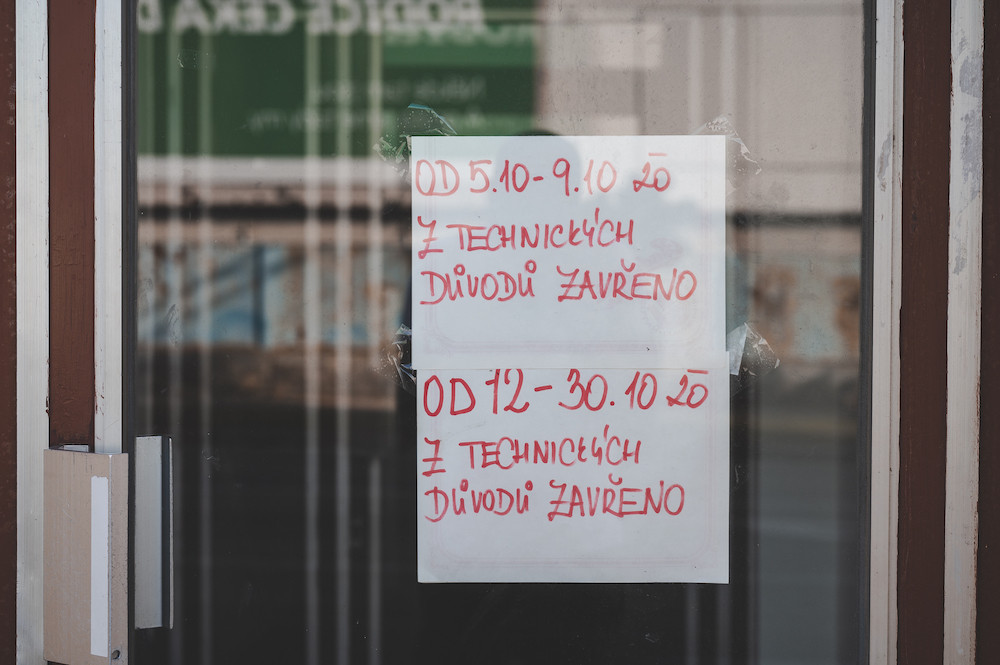 OD 5.10-9.10 20
Z TECHNICKÝCH
DŮVODŮ ZAVŘENO
OD 12-30.10 20
Z TECHNICKÝCH
DŮVODŮ ZAVŘENO